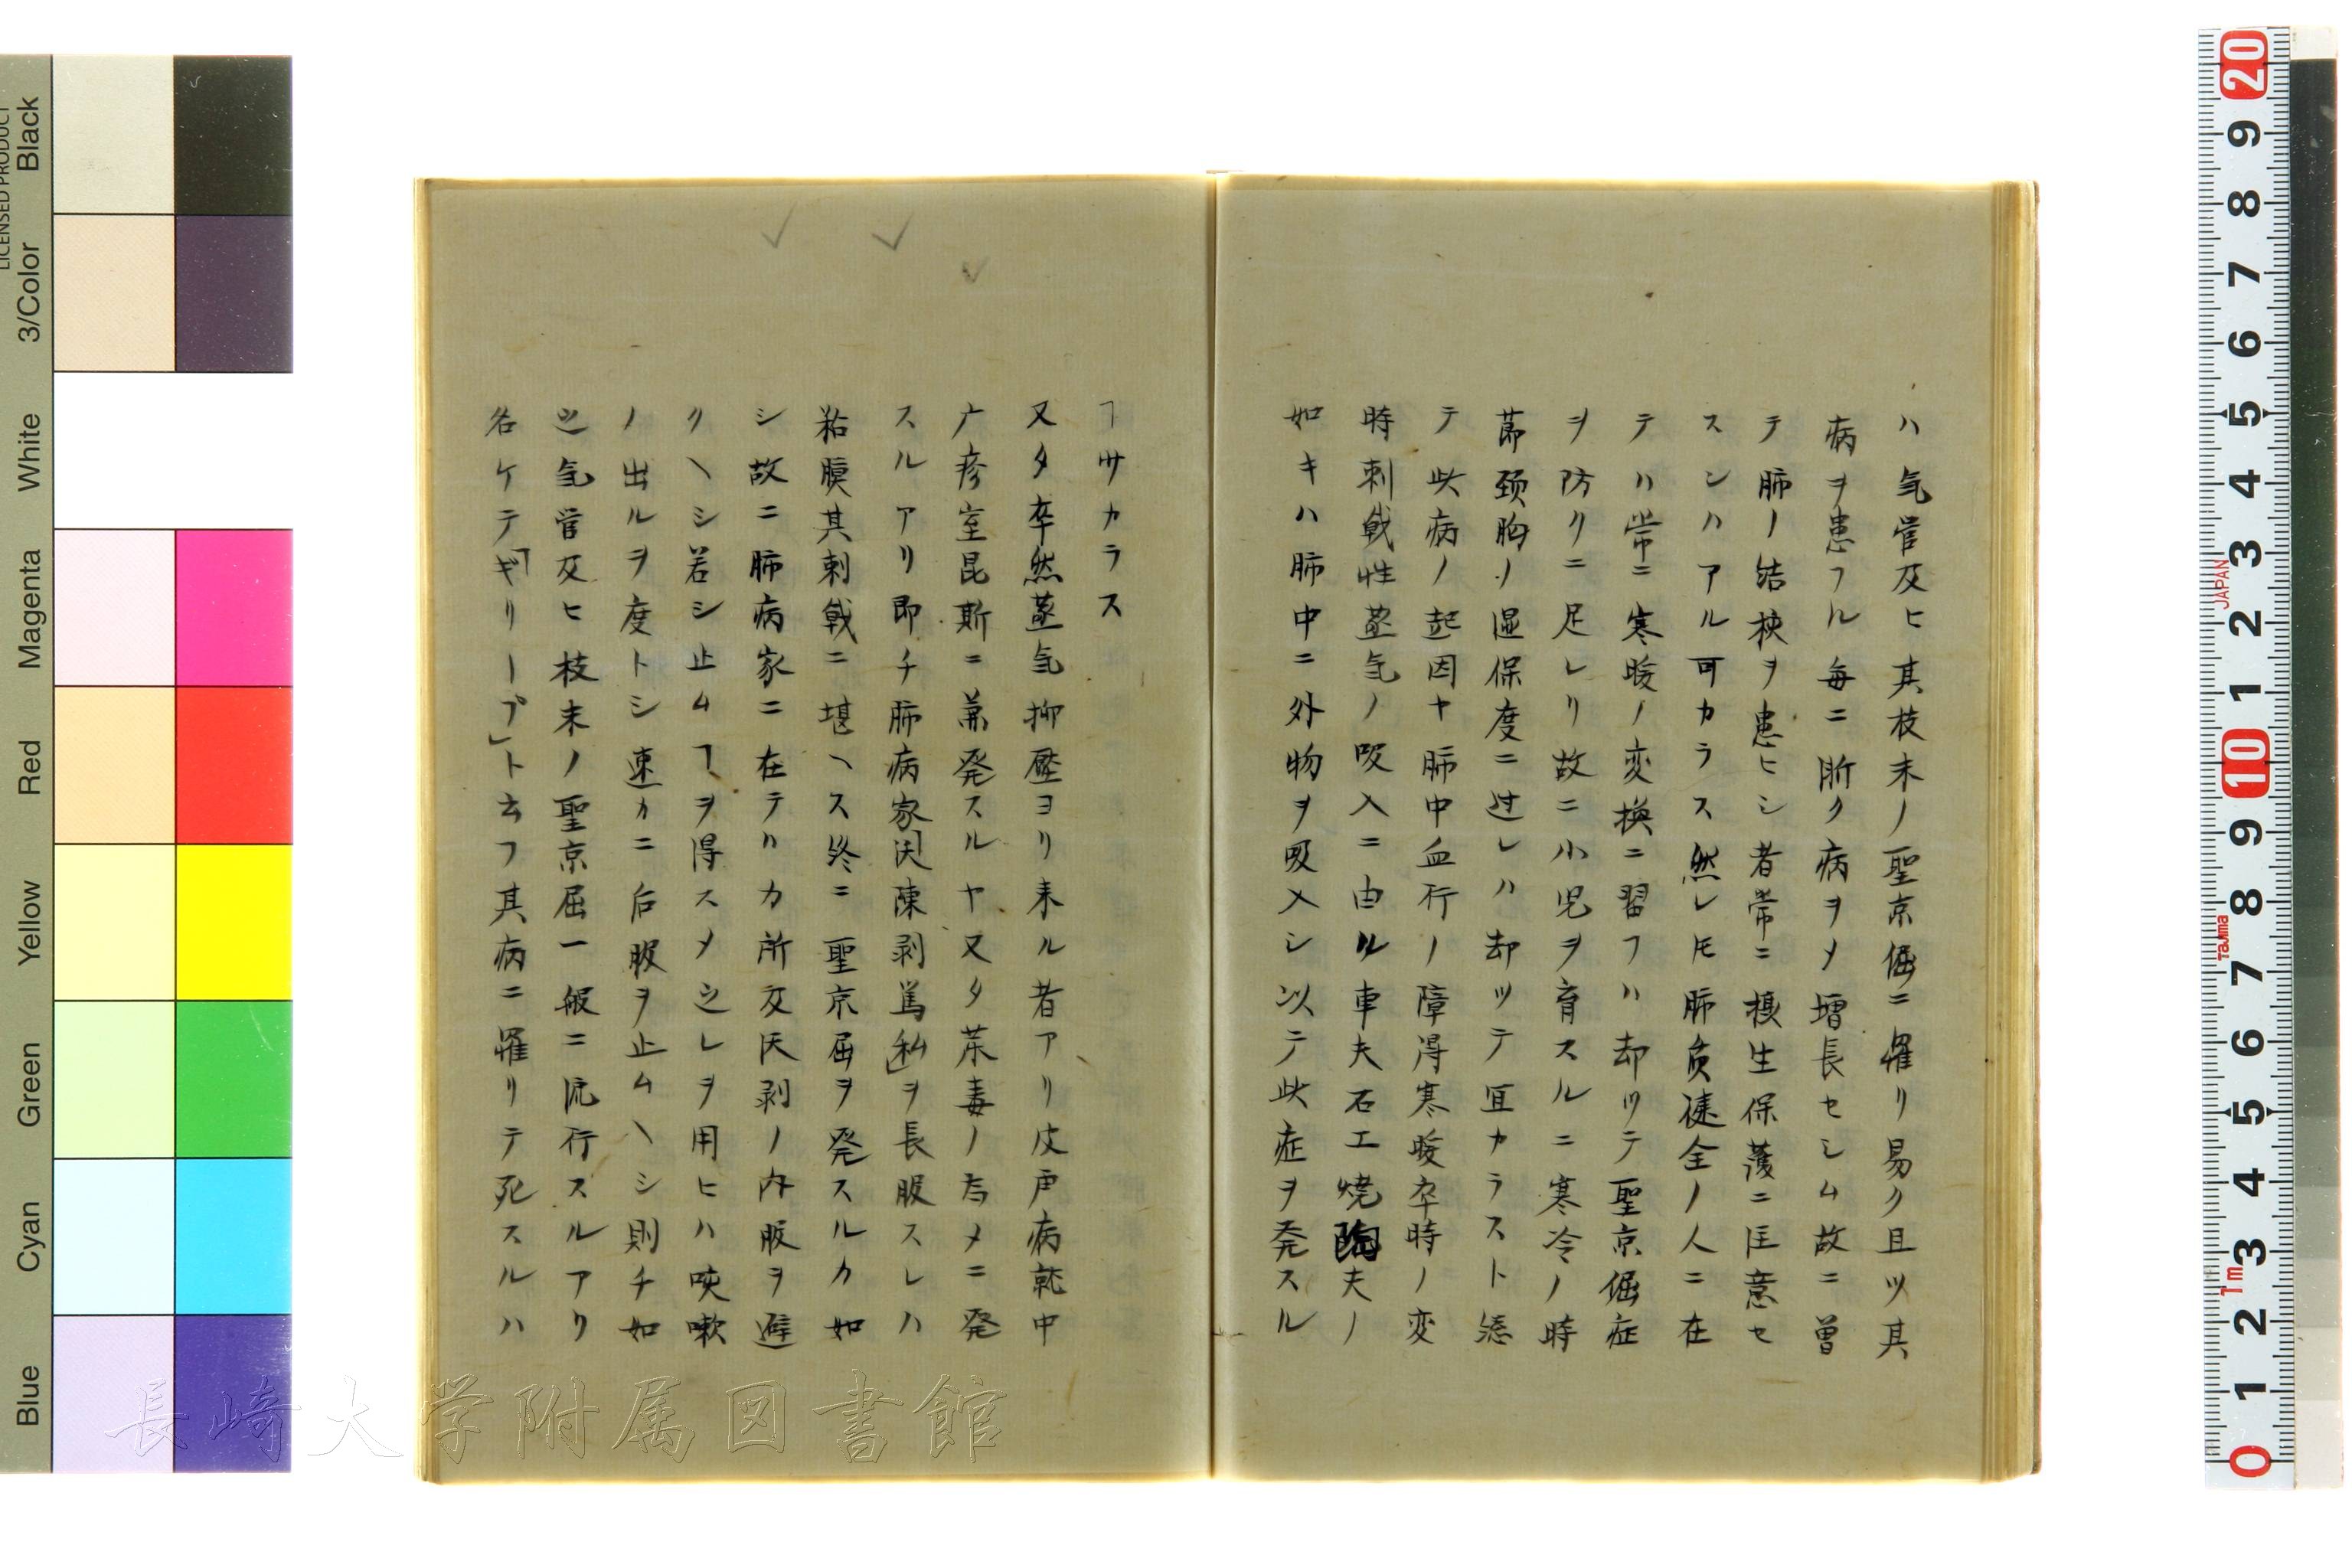 ハ気管及ヒ其枝末ノ聖京倔ニ罹リ易ク且ツ其
病ヲ患フル毎ニ斯ク病ヲメ増長セシム故ニ曽
テ肺ノ結核ヲ患ヒシ者常ニ摂生保護ニ注意セ
スンハアル可カラス然レ𪜈肺質健全ノ人ニ在
テハ常ニ寒暖ノ変換ニ習フハ却ツテ聖京倔症
ヲ防クニ足レリ故ニ小児ヲ育スルニ寒冷ノ時
節頚胸ノ温保度ニ过レハ却ツテ宜カラスト
テ此病ノ起因ヤ肺中血行ノ障碍寒暖卒時ノ変
時刺戟性蒸気ノ吸入ニ由ル車夫石工焼陶夫ノ
如キハ肺中ニ外物ヲ吸入シ以テ此症ヲ発スル
ヿサカラス
又タ卒然蒸気抑壓ヨリ来ル者アリ皮膚病就中
疹室昆斯ニ兼発スルヤ又タ茶毒ノ為メニ発
スルアリ即チ肺病家「沃陳剥篤私」ヲ長服スレハ
粘膜其刺戟ニ堪ヘス終ニ聖京屈ヲ発スルカ如
シ故ニ肺病家ニ在テハカ所及沃剥ノ内服ヲ避
クヘシ若シ止ムヿヲ得スメ之レヲ用ヒハ咳嗽
ノ出ルヲ度トシ速カニ后服ヲ止ムヘシ則チ如
之気管及ヒ枝末ノ聖京屈一般ニ流行スルアリ
名ケテ「ギリーブ」ト云フ其病ニ罹リテ死スルハ
長崎大学附属図書館
LICENSED PRODUCT
Black
3/Color
White
Magenta
Red
Yellow
Green
Cyan
Blue
20 9 8 7 6 5 4 3 2 1 10 9 8 7 6 5 4 3 2 1 0
JAPAN
Tajima
1m